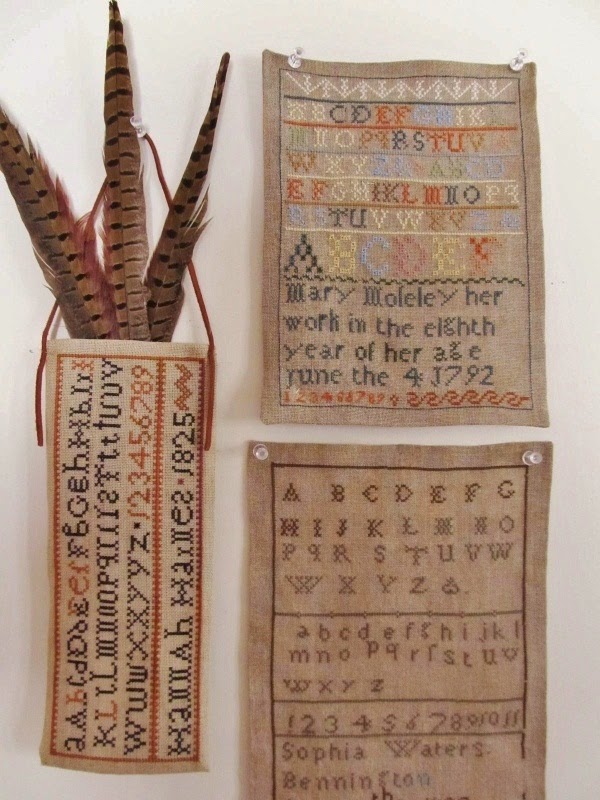 ABCDEFGHIKL
MNOPQRSTUV
WXYZ&ABCD
EFGHIKLMNOPQ
RSTUVWXYZ
ABCDEF
Mary Moseley her
work in the eighth
year of her age
June the 4 1792
123456789
aAbBcCdDeEfFgGhHiI
kKlLmMnNoOpPqQrRsStTuUvV
wWxXyYzZ·123456789
Hannah Haines·1825
A B C D E F G
H I J K L M N O
P Q R S T U V W
W X Y Z &.
a b c d e f g h i j k l
m n o p q r ſ s t u v
w x y z
1 2 3 4 5 6 7 8 9 10 11
Sophia Waters.
Bennington